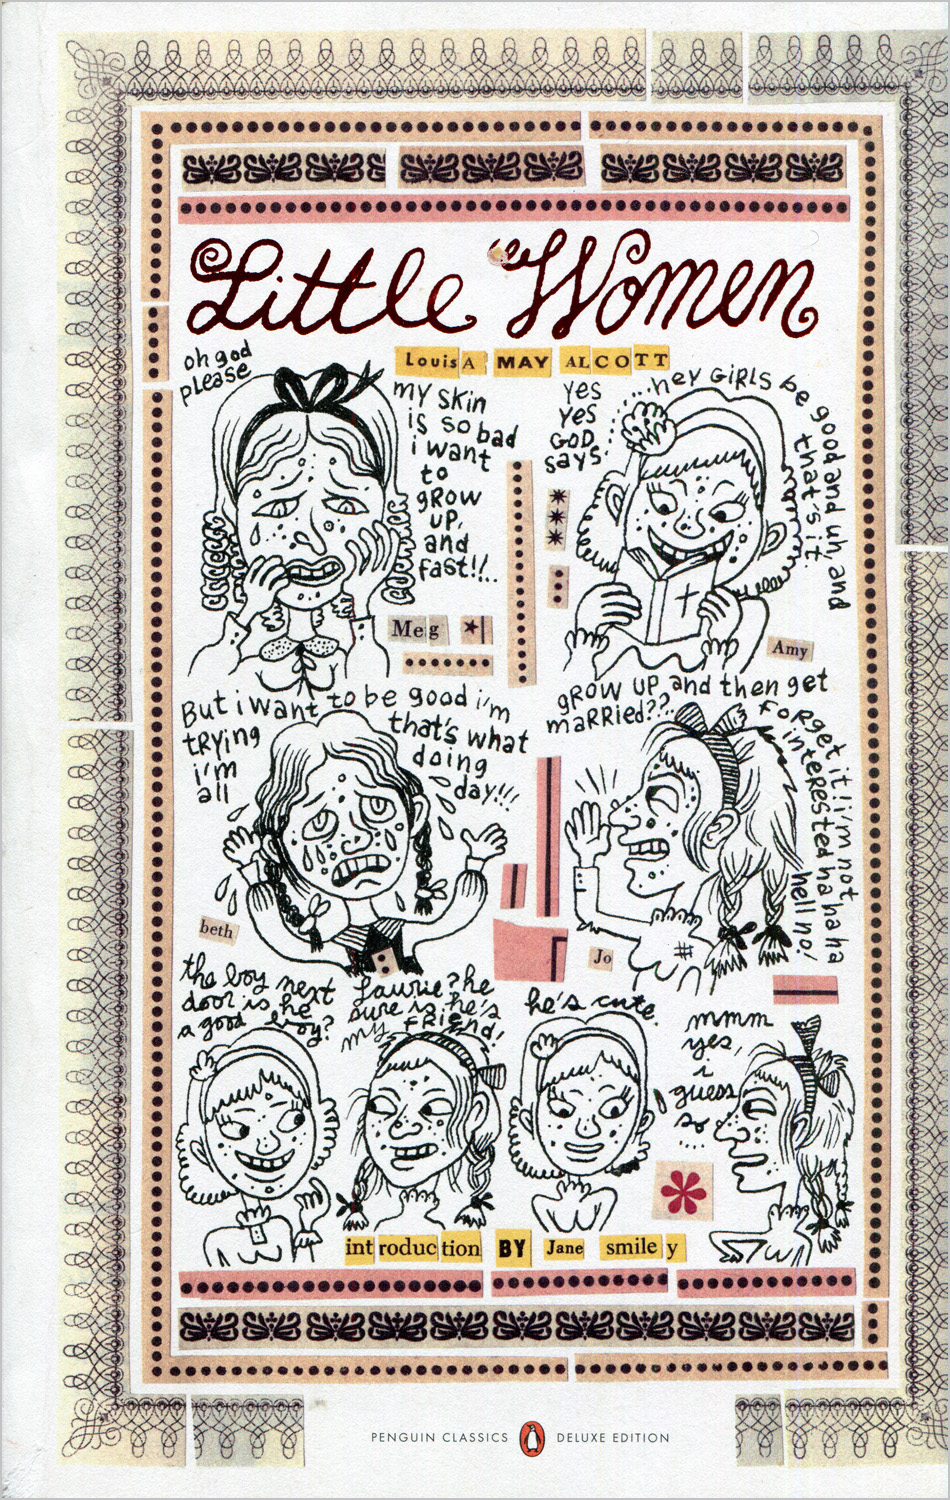 Little Women
LouisA MAY ALCOTT
oh god
please
my skin
is so bad
i want
to
gRow
up,
and
fast!!..
Meg
YES
YES
GOD
says.
..hey GiRLS be good and uh, and
that's it.
Amy
But i want to be good i'm
trying
i'm
all
that's what
doing
day!!!
beth
gRow up and then get
maRRied??.
foRget it!! i'm not
inteRested ha ha ha
hell no!
Jo
the boy next
door is he
a good boy?
Laurie? he
sure is he's
my friend!
he's cute.
mmm
yes,
i
guess
so..
introduction BY Jane smiley
PENGUIN CLASSICS DELUXE EDITION